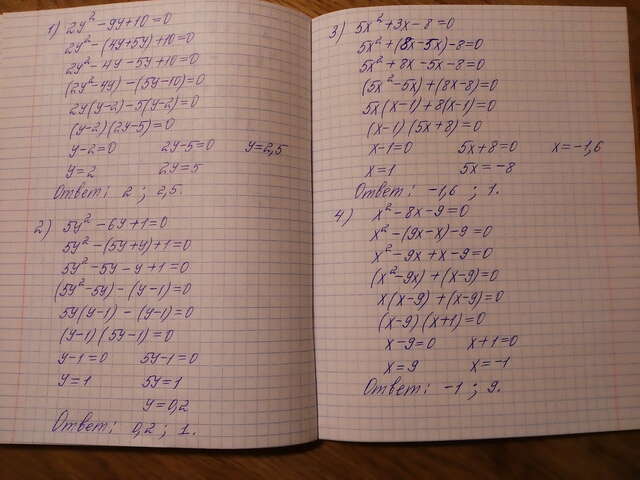 1) 2y² - 9y + 10 = 0
2y² - (4y + 5y) + 10 = 0
2y² - 4y - 5y + 10 = 0
(2y² - 4y) - (5y - 10) = 0
2y(y - 2) - 5(y - 2) = 0
(y - 2)(2y - 5) = 0
y - 2 = 0 2y - 5 = 0 y = 2,5
y = 2 2y = 5
Ответ: 2 ; 2,5.
2) 5y² - 6y + 1 = 0
5y² - (5y + y) + 1 = 0
5y² - 5y - y + 1 = 0
(5y² - 5y) - (y - 1) = 0
5y(y - 1) - (y - 1) = 0
(y - 1)(5y - 1) = 0
y - 1 = 0 5y - 1 = 0
y = 1 5y = 1
y = 0,2
Ответ: 0,2 ; 1.
3) 5x² + 3x - 8 = 0
5x² + (8x - 5x) - 8 = 0
5x² + 8x - 5x - 8 = 0
(5x² - 5x) + (8x - 8) = 0
5x(x - 1) + 8(x - 1) = 0
(x - 1)(5x + 8) = 0
x - 1 = 0 5x + 8 = 0 x = -1,6
x = 1 5x = -8
Ответ: -1,6 ; 1.
4) x² - 8x - 9 = 0
x² - (9x - x) - 9 = 0
x² - 9x + x - 9 = 0
(x² - 9x) + (x - 9) = 0
x(x - 9) + (x - 9) = 0
(x - 9)(x + 1) = 0
x - 9 = 0 x + 1 = 0
x = 9 x = -1
Ответ: -1 ; 9.